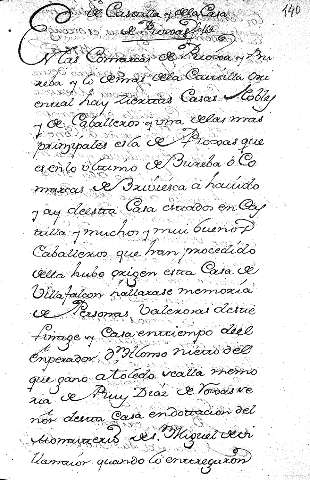 140
de Castilla y de la Casa
de Rojas
En las Comarcas de Rioxa y Bu
reba y lo demas de la Castilla Ori
ental hay ciertas Casas Nobles
y de Caballeros y una de las mas
principales es la de Roxas que
es en lo ultimo de Bureba ó Co
marcas de Briviesca á havido
y ay de esta Casa estados en Cas
tilla y muchos y mui buenos
Caballeros que han procedido
della hubo origen esta Casa de
Villafalcon hallarase memoria
de Personas Valerosas deste
linage y Casa en tiempo de el
emperador Dn Alonso nieto del
que gano a Toledo y calla memo
ria de Ruy Diaz de Roxas se
ñor desta Casa en dotacion del
Monasterio de S. Miguel de Vi
llamaior quando lo entregaron